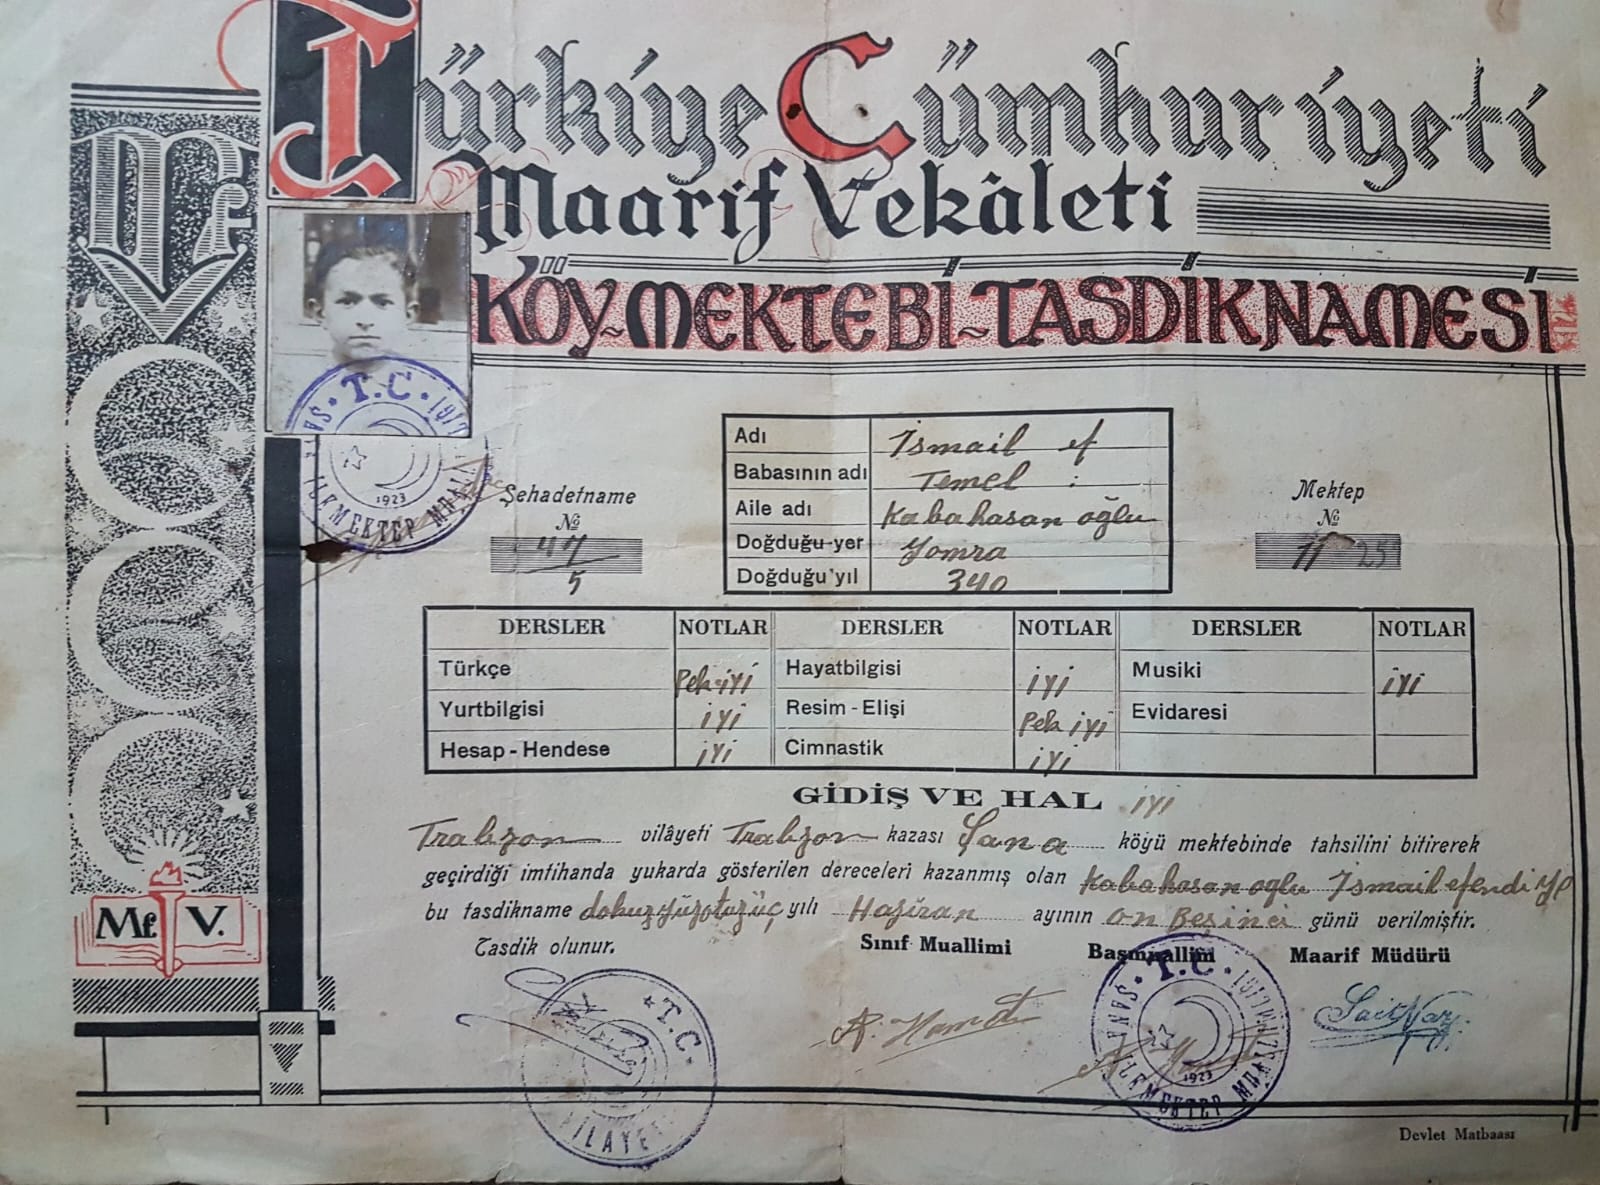 Türkiye Cümhuriyeti
Maarif Vekâleti
KÖY-MEKTEBİ-TASDİKNAMESİ
Mf
T.C
1923
Adı İsmail ef
Babasının adı Temel :
Aile adı Kabahasan oğlu
Doğduğu yer Yomra
Doğduğu yıl 340
Şehadetname
№
47
5
Mektep
№
11 25
DERSLER NOTLAR DERSLER NOTLAR DERSLER NOTLAR
Türkçe Pek iyi Hayatbilgisi iyi Musiki iyi
Yurtbilgisi iyi Resim - Elişi Pek iyi Evidaresi
Hesap - Hendese iyi Cimnastik iyi
GİDİŞ VE HAL iyi
Trabzon vilâyeti Trabzon kazası Şana köyü mektebinde tahsilini bitirerek
geçirdiği imtihanda yukarda gösterilen dereceleri kazanmış olan Kabahasan oglu İsmail efendi ye
bu tasdikname dokuzyüzotuzüç yılı Haziran ayının on Beşinci günü verilmiştir.
Tasdik olunur. Sınıf Muallimi Başmuallim Maarif Müdürü
Mf. V.
T.C.
T.C.
1923
Devlet Matbaası